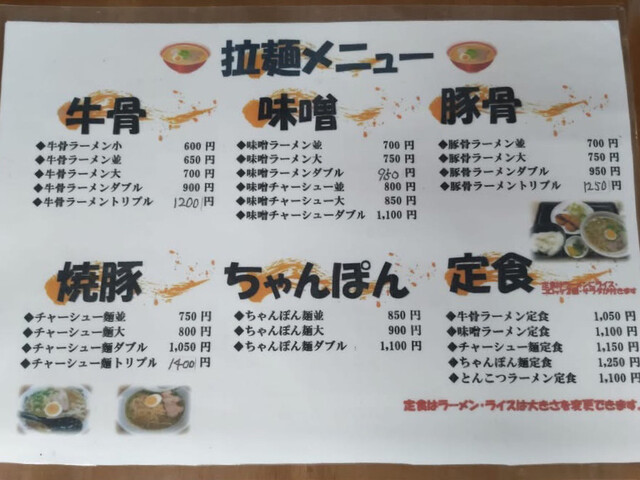 拉麺メニュー
牛骨
◆牛骨ラーメン小 600円
◆牛骨ラーメン並 650円
◆牛骨ラーメン大 700円
◆牛骨ラーメンダブル 900円
◆牛骨ラーメントリプル 1200円
味噌
◆味噌ラーメン並 700円
◆味噌ラーメン大 750円
◆味噌ラーメンダブル 950円
◆味噌チャーシュー並 800円
◆味噌チャーシュー大 850円
◆味噌チャーシューダブル 1,100円
豚骨
◆豚骨ラーメン並 700円
◆豚骨ラーメン大 750円
◆豚骨ラーメンダブル 950円
◆豚骨ラーメントリプル 1250円
焼豚
◆チャーシュー麺並 750円
◆チャーシュー麺大 800円
◆チャーシュー麺ダブル 1,050円
◆チャーシュー麺トリプル 1400円
ちゃんぽん
◆ちゃんぽん麺並 850円
◆ちゃんぽん麺大 900円
◆ちゃんぽん麺ダブル 1,100円
定食
◆牛骨ラーメン定食 1,050円
◆味噌ラーメン定食 1,100円
◆チャーシュー麺定食 1,150円
◆ちゃんぽん麺定食 1,250円
◆とんこつラーメン定食 1,100円
定食はラーメン・ライスは大きさを変更できます。